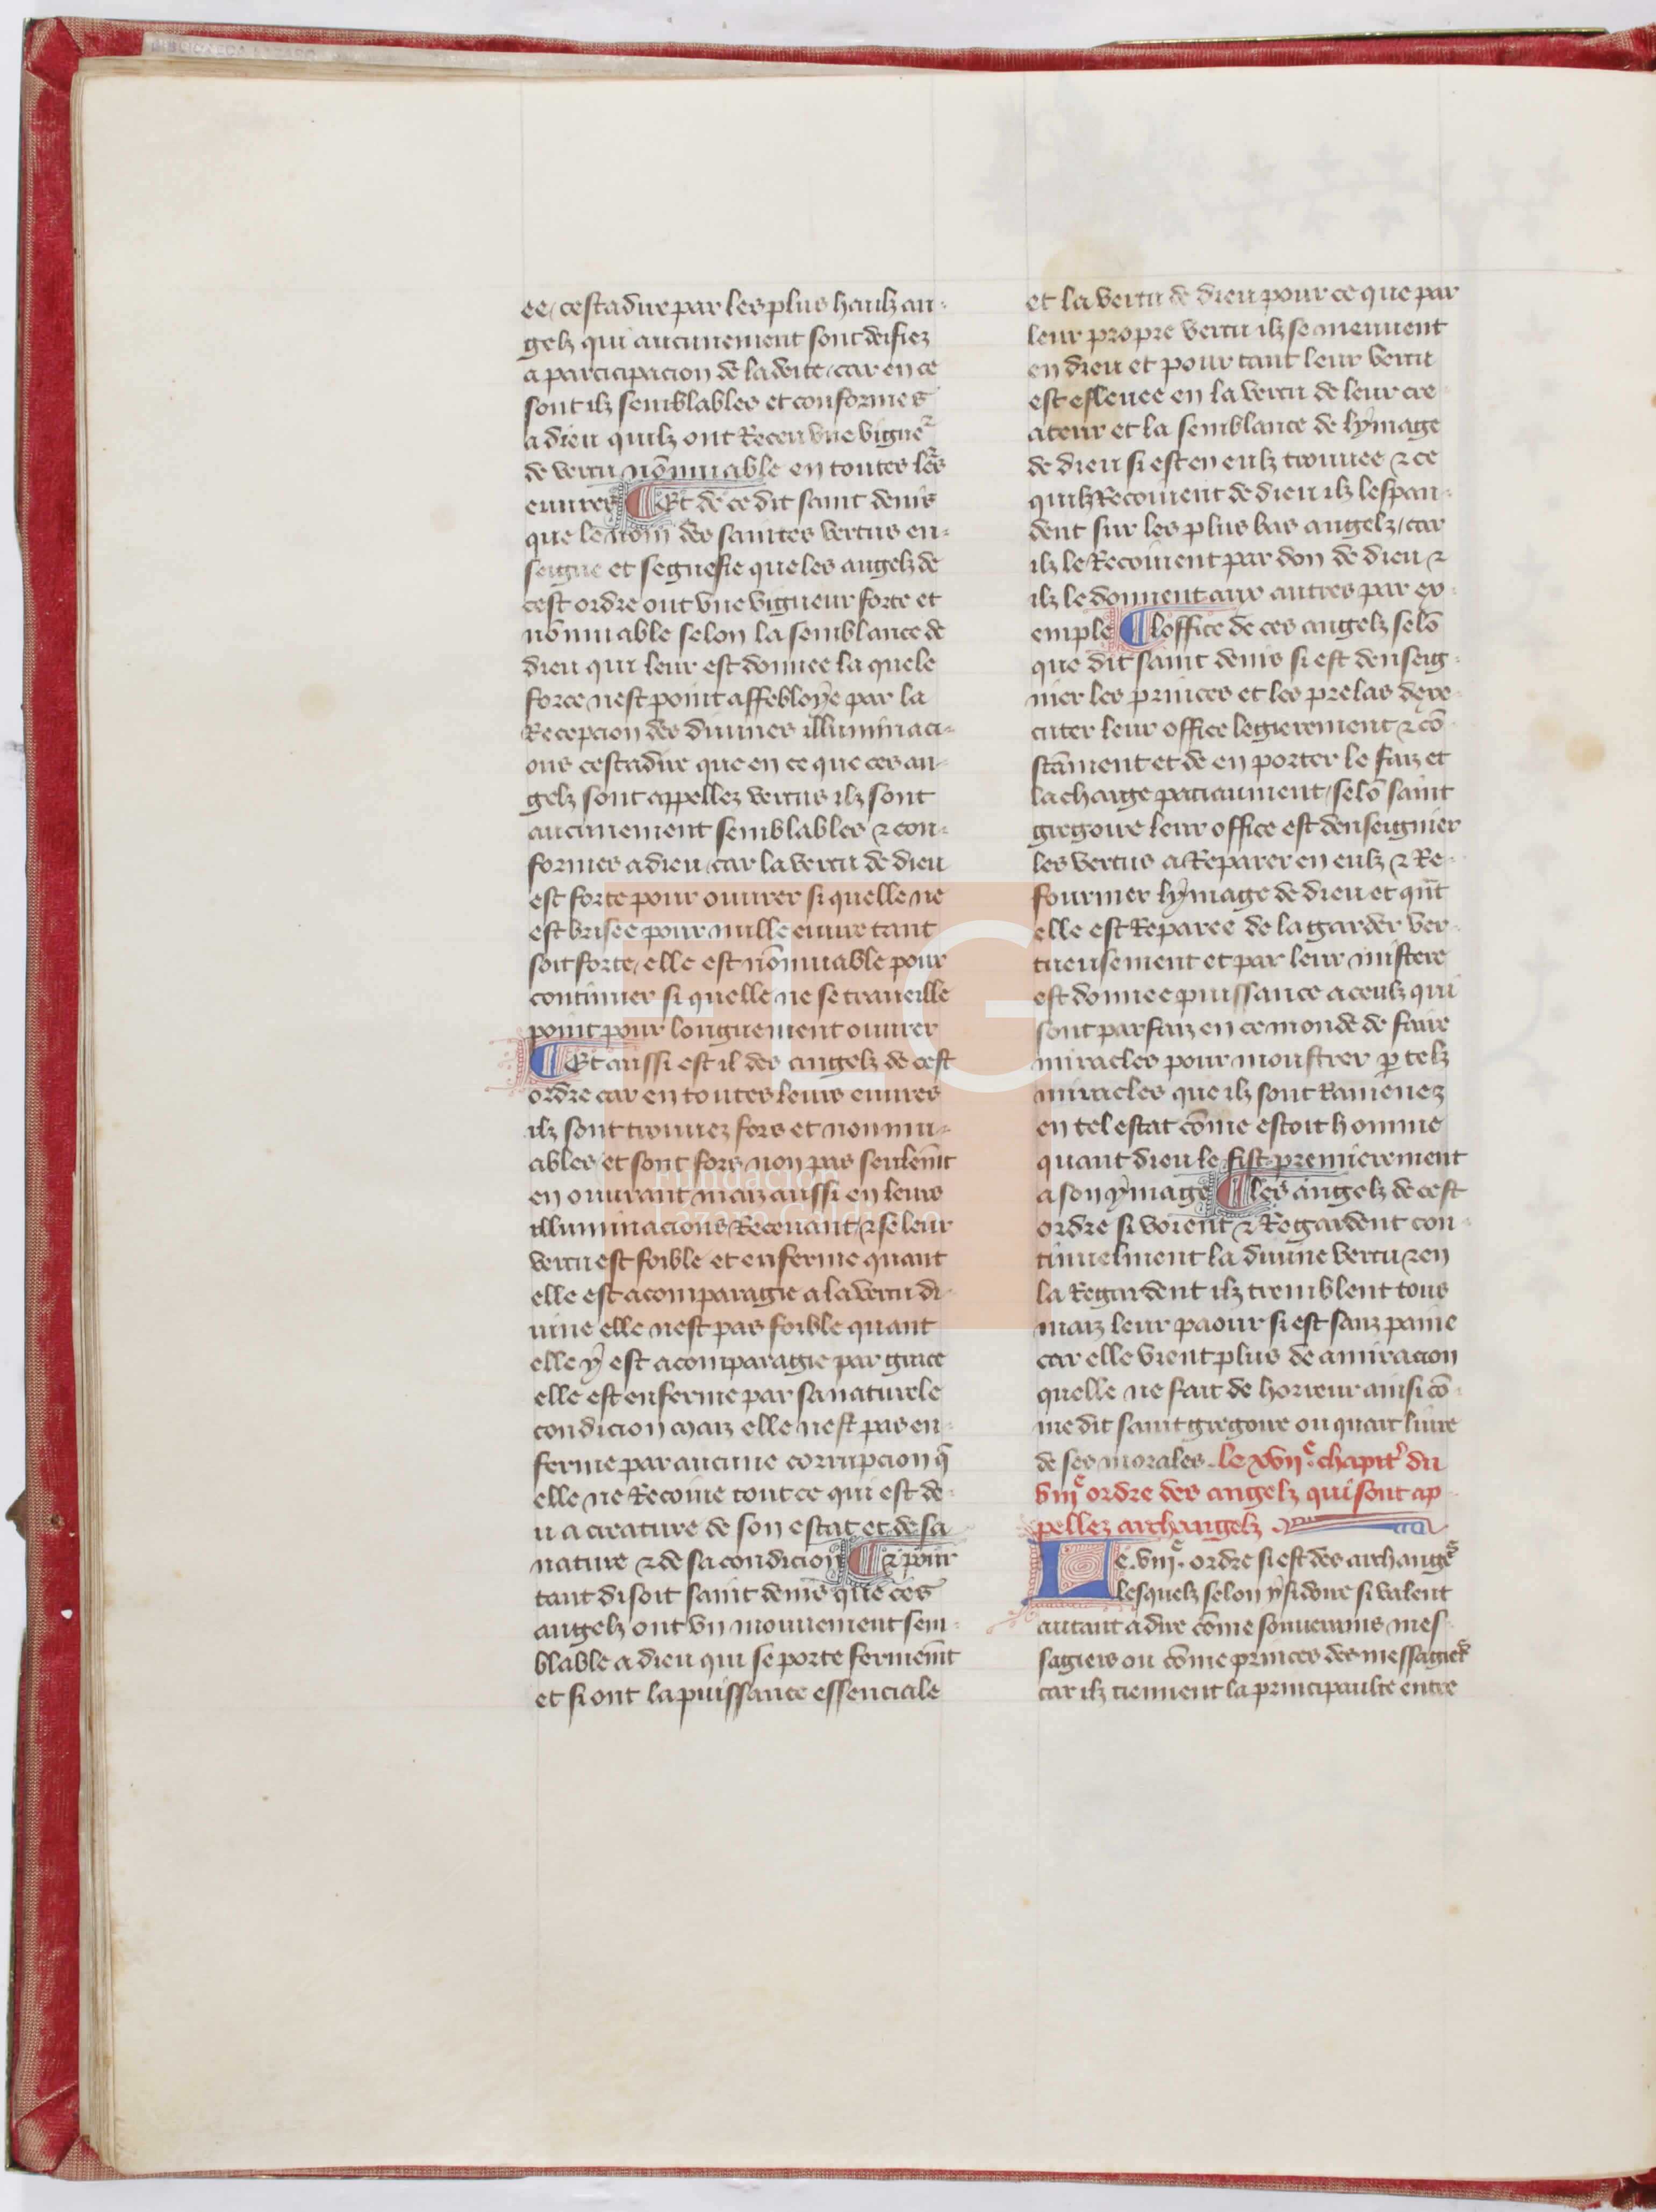 ee / cestadire par les plus haulz an-
gelz qui aucunement sont deifiez
a participacion de la deite / car en ce
sont ilz semblables et conformes
a dieu quilz ont Receu vne vigueᷣ
de vertu nõmuable en toutes leᷣs
euures Et de ce dit saint denis
que le nom des saintes vertus en-
seigne et segnefie que les angelz de
cest ordre ont vne vigueur forte et
nõmuable selon la semblance de
dieu qui leur est donnee la quele
force nest point affebloÿe par la
Recepcion des diuines illuminaci-
ons cestadire que en ce que ces an-
gelz sont appellez vertus ilz sont
aucunement semblables ⁊ con-
formes a dieu / car la vertu de dieu
est forte pour ouurer si quelle ne
est brisee pour nulle euure tant
soit forte / elle est nõmuable pour
continuer si quelle ne se traueille
point pour longuement ouurer
Et aussi est il des angelz de cest
ordre car en toutes leurs euures
ilz sont trouuez fors et non mu-
ables / et sont fors non pas seulemẽt
en ouurant maiz aussi en leurs
illuminacions Receuant / ⁊ se leur
vertu est foible et enferme quant
elle est acomparagie a la vertu di-
uine elle nest pas foible quant
elle ÿ est acomparagie par grace
elle est enferme par sa naturele
condicion maiz elle nest pas en-
ferme par aucune corrupcion q̃
elle ne Recoiue tout ce qui est de-
u a creature de son estat et de sa
nature ⁊ de sa condicion ⁊ pour
tant disoit saint denis que ces
angelz ont vn mouuement sem-
blable a dieu qui se porte fermemẽt
et si ont la puissance essenciale
et la vertu de dieu pour ce que par
leur propre vertu ilz se meuuent
en dieu et pour tant leur vertu
est esleuee en la vertu de leur cre-
ateur et la semblance de lÿmage
de dieu si est en eulz trouuee ⁊ ce
quilz Recoiuent de dieu ilz lespan-
dent sur les plus bas angelz / car
ilz le Recoiuent par don de dieu ⁊
ilz le donnent aux autres par ex-
emple loffice de ces angelz selõ
que dit saint denis si est denseig-
nier les princes et les prelas dexe-
cuter leur office legierement ⁊ cõ-
stãment et de en porter le faiz et
la charge paciaument / selõ saint
gregoire leur office est denseignier
les vertus a Reparer en eulz ⁊ Re-
fourmer lÿmage de dieu et qñt
elle est Reparee de la garder ver-
tueusement et par leur mistere
est donnee puissance a ceulz qui
sont parfaiz en ce monde de faire
miracles pour moustrer ꝑ telz
miracles que ilz sont Ramenez
en tel estat cõme estoit homme
quant dieu le fist premierement
a son ÿmage les angelz de cest
ordre si voient ⁊ Regardent con-
tinuelment la diuine vertu ⁊ en
la Regardent ilz tremblent tous
maiz leur paour si est sanz paine
car elle vient plus de amiracion
quelle ne fait de horreur ainsi cõ-
me dit saint gregoire ou quart liure
de ses morales . le xvijᵉ. chapitʼ du
viijᵉ ordre des angelz qui sont ap-
pellez archangelz .
Le .viijᵉ. ordre si est des archangeˢ
lesquelz selon ÿsidore si valent
autant a dire cõme souuerains mes-
sagiers ou cõme princes des messagieʳˢ
car ilz tiennent la principaulte entre
FLG
Fundación
Lázaro Galdiano